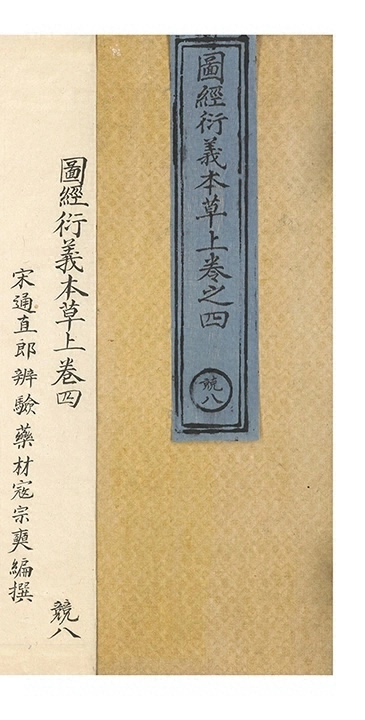 圖經衍義本草上卷之四
競八
圖經衍義本草上卷四
競八
宋通直郎辨驗藥材寇宗奭編撰